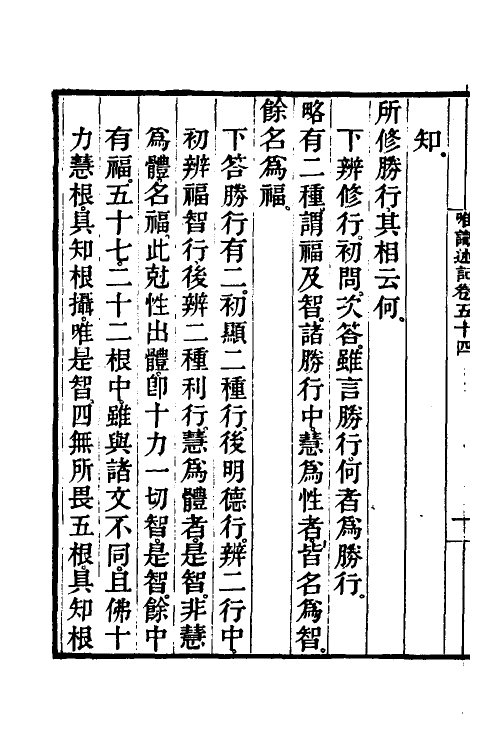 唯識述記卷五十四
十一
知。
所修勝行。其相云何。
下辨修行。初問。次答。雖言勝行。何者爲勝行。
略有二種。謂福及智。諸勝行中。慧爲性者。皆名爲智。
餘名爲福。
下答勝行有二。初顯二種行。後明德行。辨二行中。
初辨福智行。後辨二種利行。慧爲體者。是智。非慧
爲體。名福。此尅性出體。卽十力一切智。是智。餘中
有福。五十七。二十二根中。雖與諸文不同。且佛十
力慧根。具知根攝。唯是智。四無所畏五根。具知根